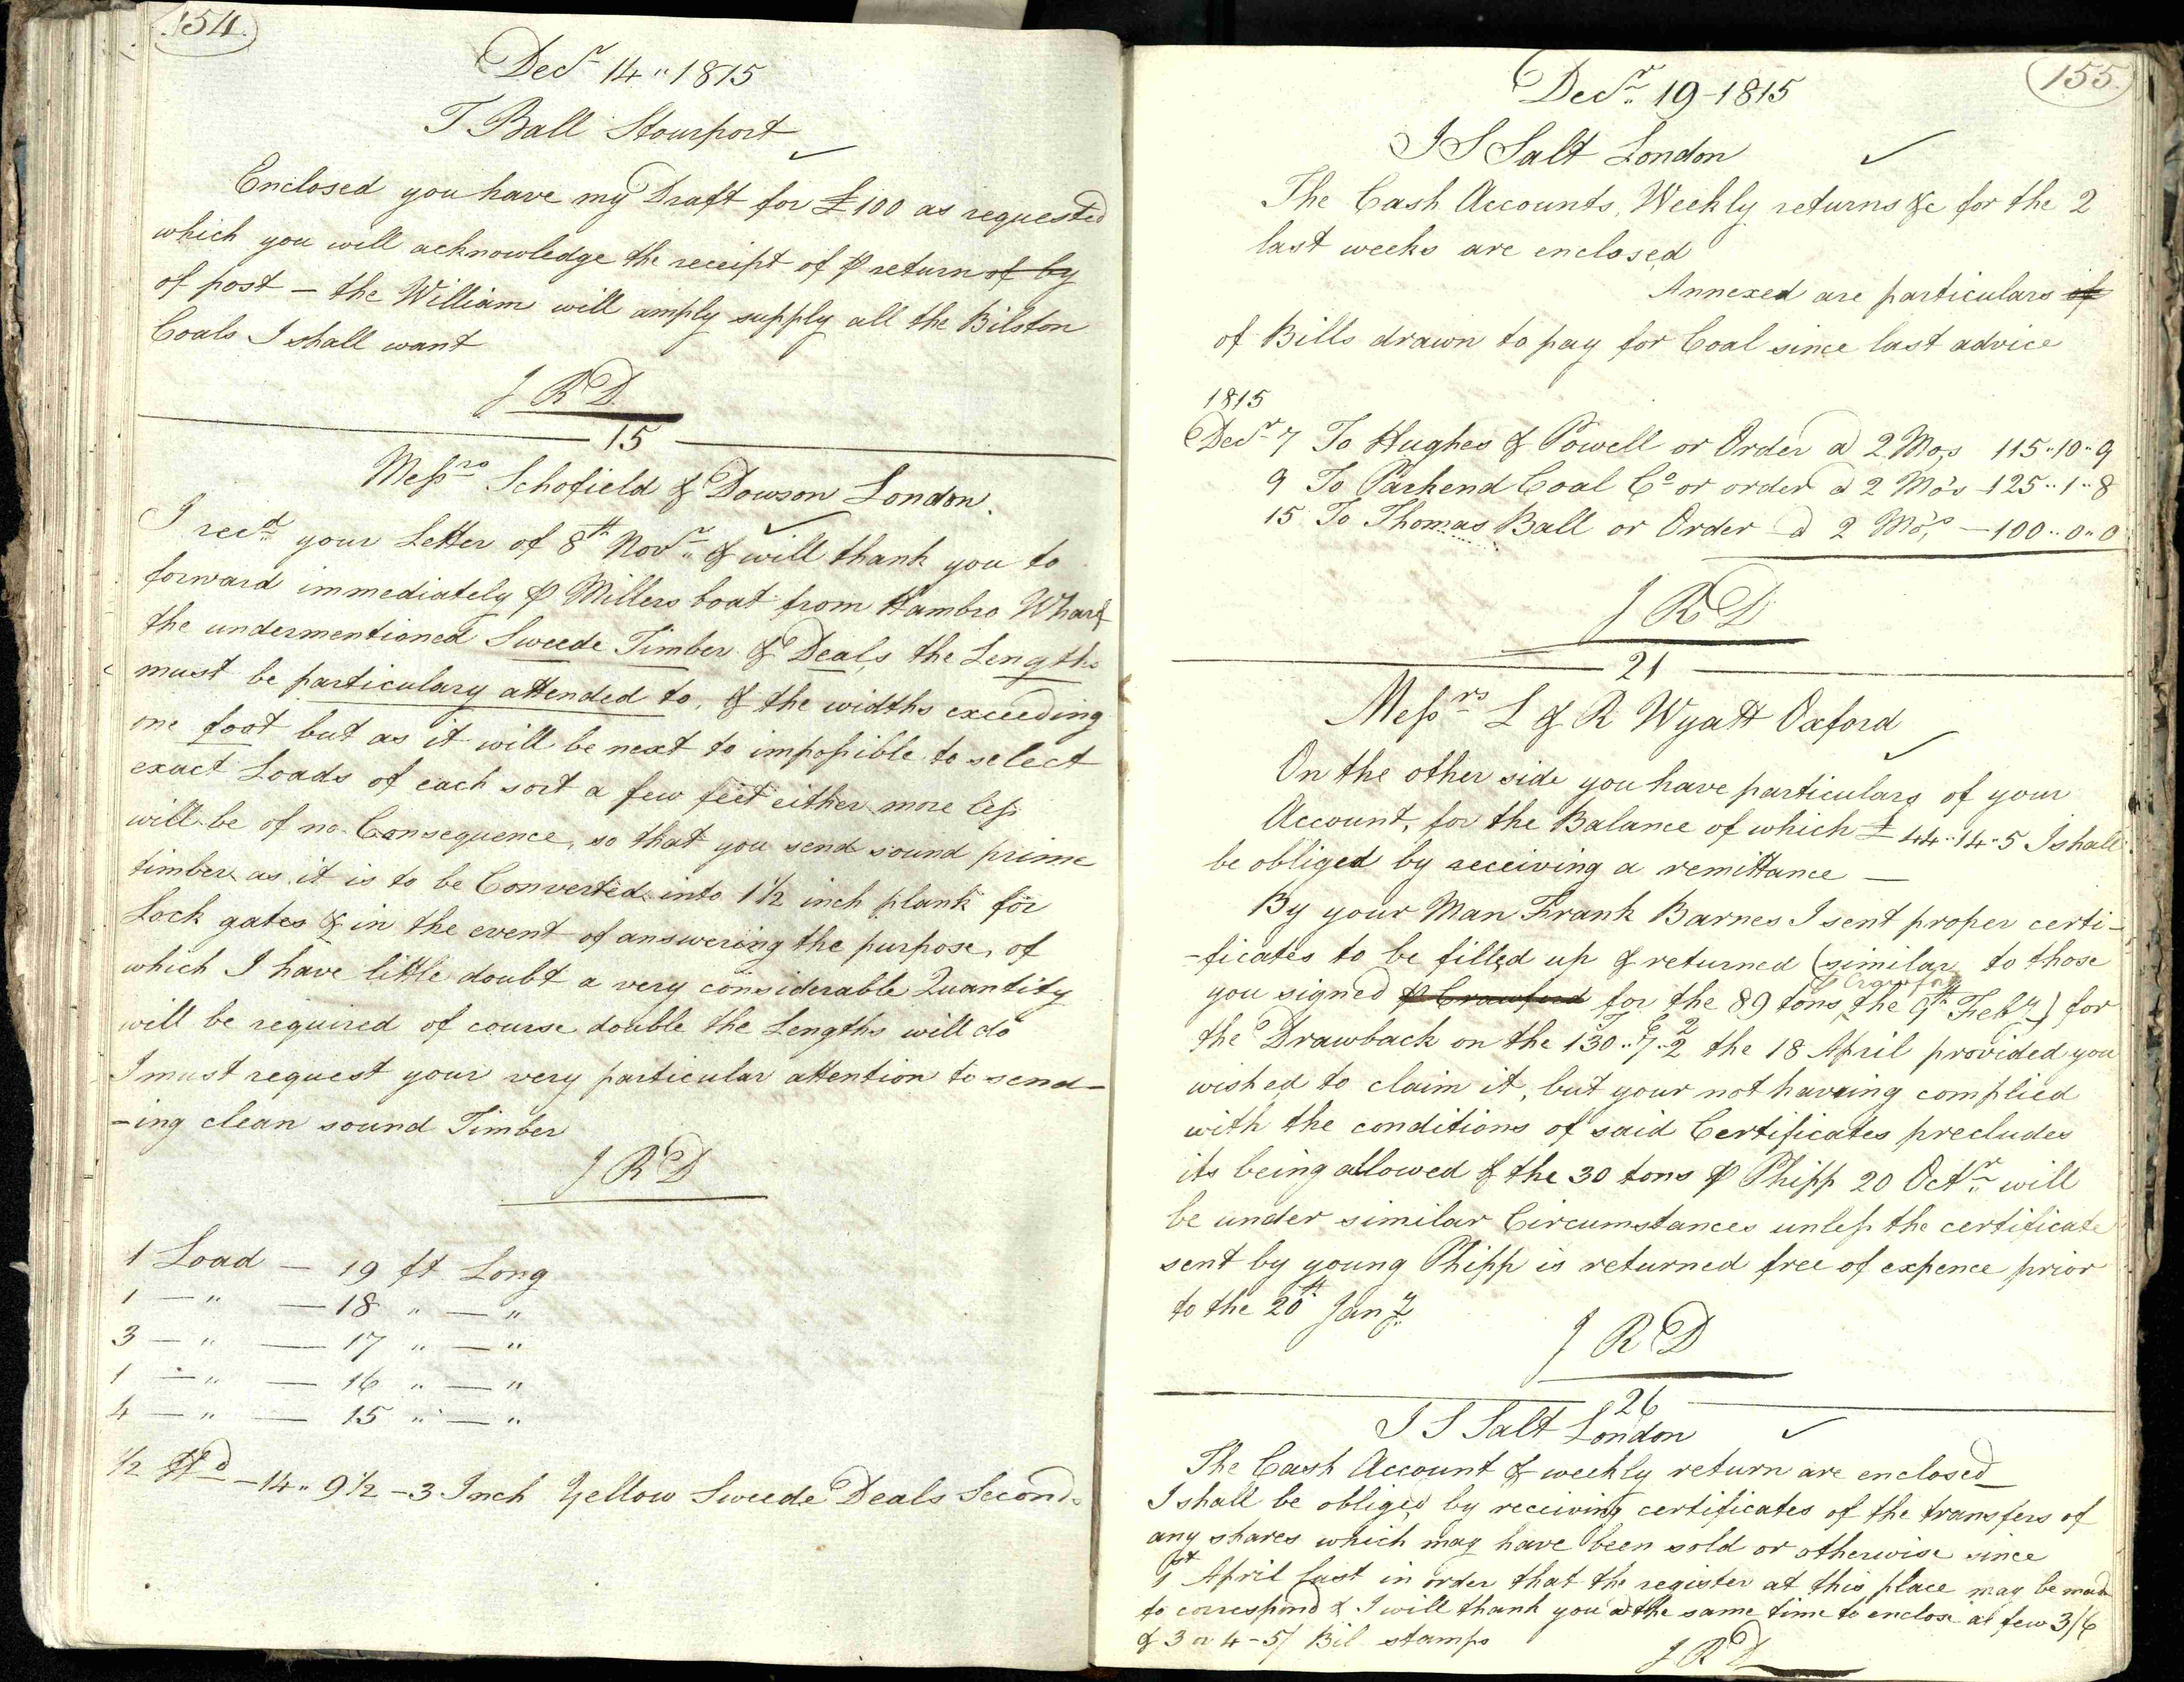 154.
Decr 14 " 1815
T Ball Stourport
Enclosed you have my Draft for £100 as requested
which you will acknowledge the receipt of ⅌ return of by
of post – the William will amply supply all the Bilston
Coals I shall want
J R D
15
Messrs Schofield & Dowson London.
I recd your Letter of 8th Novr & will thank you to
forward immediately ⅌ Millers boat from Hambro Wharf
the undermentioned Sweede Timber & Deals, the Lengths
must be particulary attended to, & the widths exceeding
one foot but as it will be next to impossible to select
exact Loads of each sort a few feet either more less
will be of no Consequence, so that you send sound prime
timber as it is to be Converted into 1 1/2 inch plank for
Lock gates & in the event of answering the purpose, of
which I have little doubt a very considerable Quantity
will be required of course double the Lengths will do
I must request your very particular attention to send-
-ing clean sound Timber
J R D
1 Load – 19 ft Long
1 – " – 18 " – "
3 – " – 17 " – "
1 – " – 16 " – "
4 – " – 15 " – "
1/2 Hd – 14 " 9 1/2 – 3 Inch Yellow Sweede Deals Seconds
155.
Decr 19 – 1815
J S Salt London
The Cash Accounts, Weekly returns &c for the 2
last weeks are enclosed
Annexed are particulars of
of Bills drawn to pay for Coal since last advice
1815
Decr 7 To Hughes & Powell or Order a 2 Mos 115 " 10 " 9
9 To Parkend Coal Co or order a 2 Mo's 125 " 1 " 8
15 To Thomas Ball or Order a 2 Mo's – 100 " 0 " 0
J R D
21
Messrs L & R Wyatt Oxford
On the other side you have particulars of your
Account, for the Balance of which £44 " 14 " 5 I shall
be obliged by receiving a remittance –
By your Man Frank Barnes I sent proper certi-
-ficates to be filled up & returned (similar to those
⅌ Crawford
you signed ⅌ Crawford for the 89 tons, the 9th Feby) for
T C 2
the Drawback on the 130 " 7 " 2 the 18 April provided you
wished to claim it, but your not having complied
with the conditions of said Certificates precludes
its being allowed & the 30 tons ⅌ Phipp 20 Octr will
be under similar Circumstances unless the certificate
sent by young Phipp is returned free of expence prior
to the 20th Jany
J R D
26
J S Salt London
The Cash Account & weekly return are enclosed
I shall be obliged by receiving certificates of the transfers of
any shares which may have been sold or otherwise since
1st April last in order that the register at this place may be made
to correspond & I will thank you at the same time to enclose a few 3/6
& 3 or 4 – 5/ Bil stamps
J R D